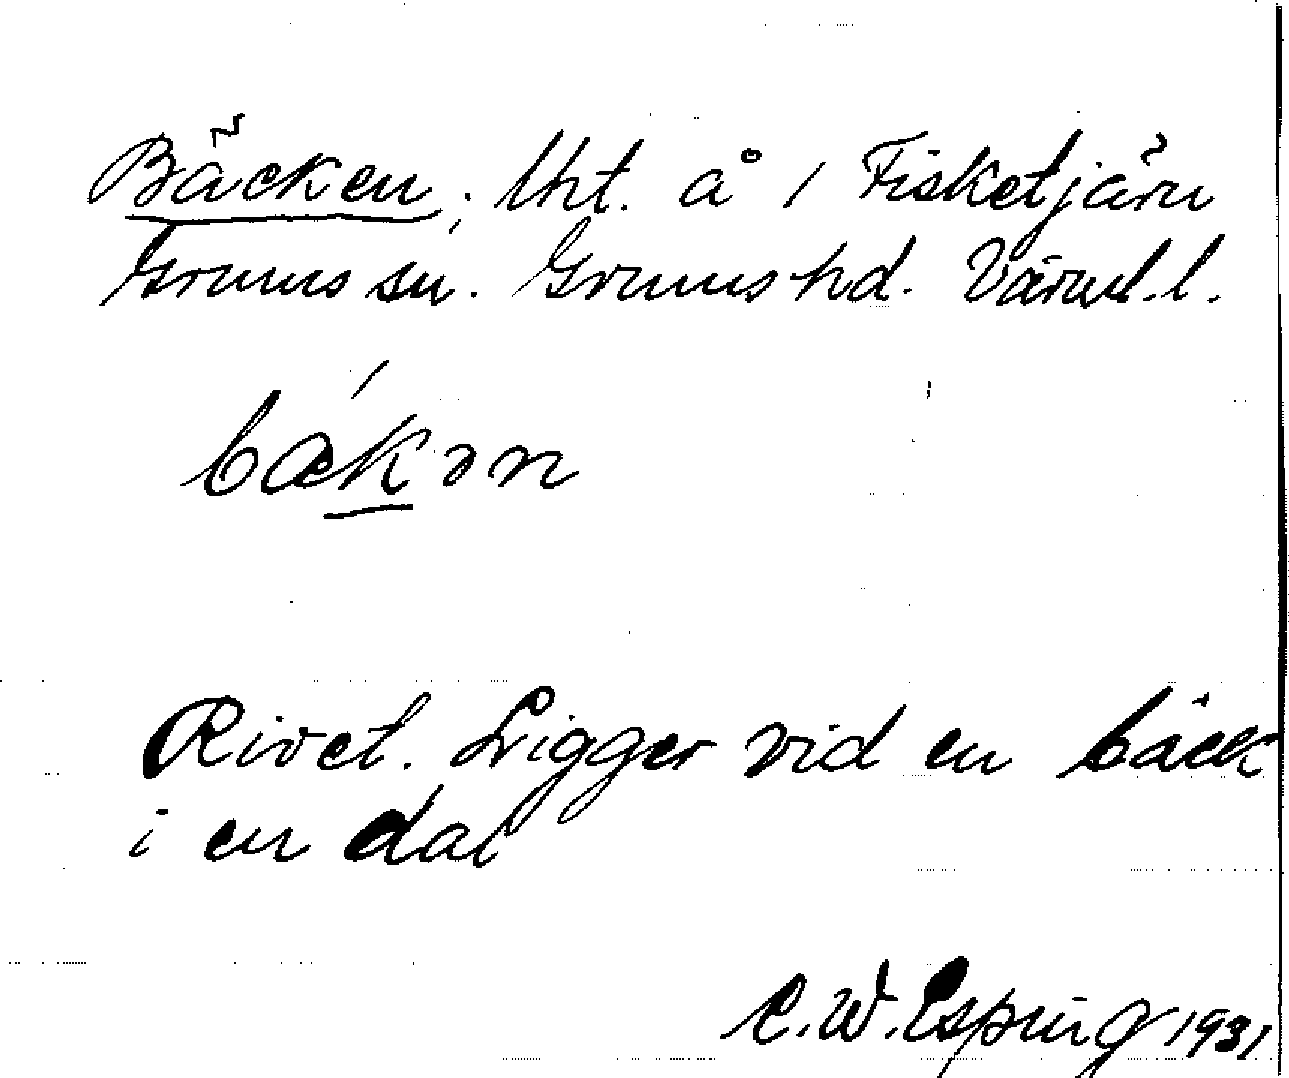 Bäcken; lht. å 1 Fisketjärn
Grums sn. Grums hd. Värml. l.
bækən
Rivet. Ligger vid en bäck
i en dal
C. W. Esping 1931